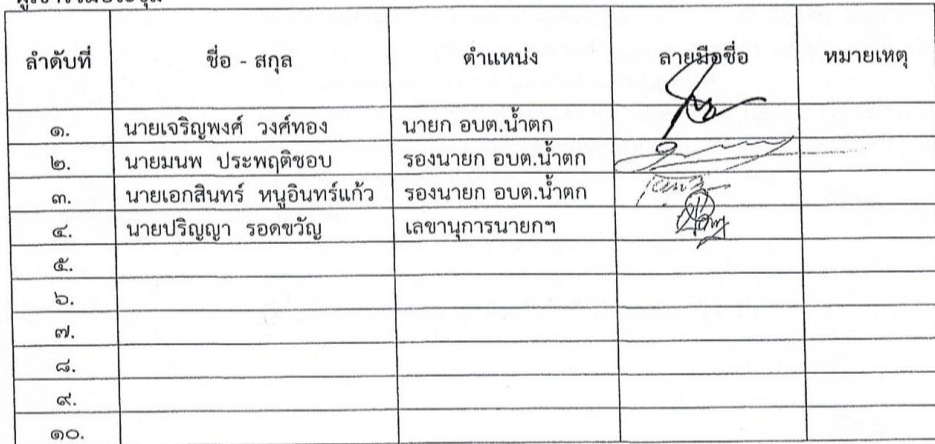 ผู้เข้าร่วมประชุม
ลำดับที่ ชื่อ - สกุล ตำแหน่ง ลายมือชื่อ หมายเหตุ
๑. นายเจริญพงศ์ วงศ์ทอง นายก อบต.น้ำตก
๒. นายมนพ ประพฤติชอบ รองนายก อบต.น้ำตก
๓. นายเอกสินทร์ หนูอินทร์แก้ว รองนายก อบต.น้ำตก
๔. นายปริญญา รอดขวัญ เลขานุการนายกฯ
๕.
๖.
๗.
๘.
๙.
๑๐.